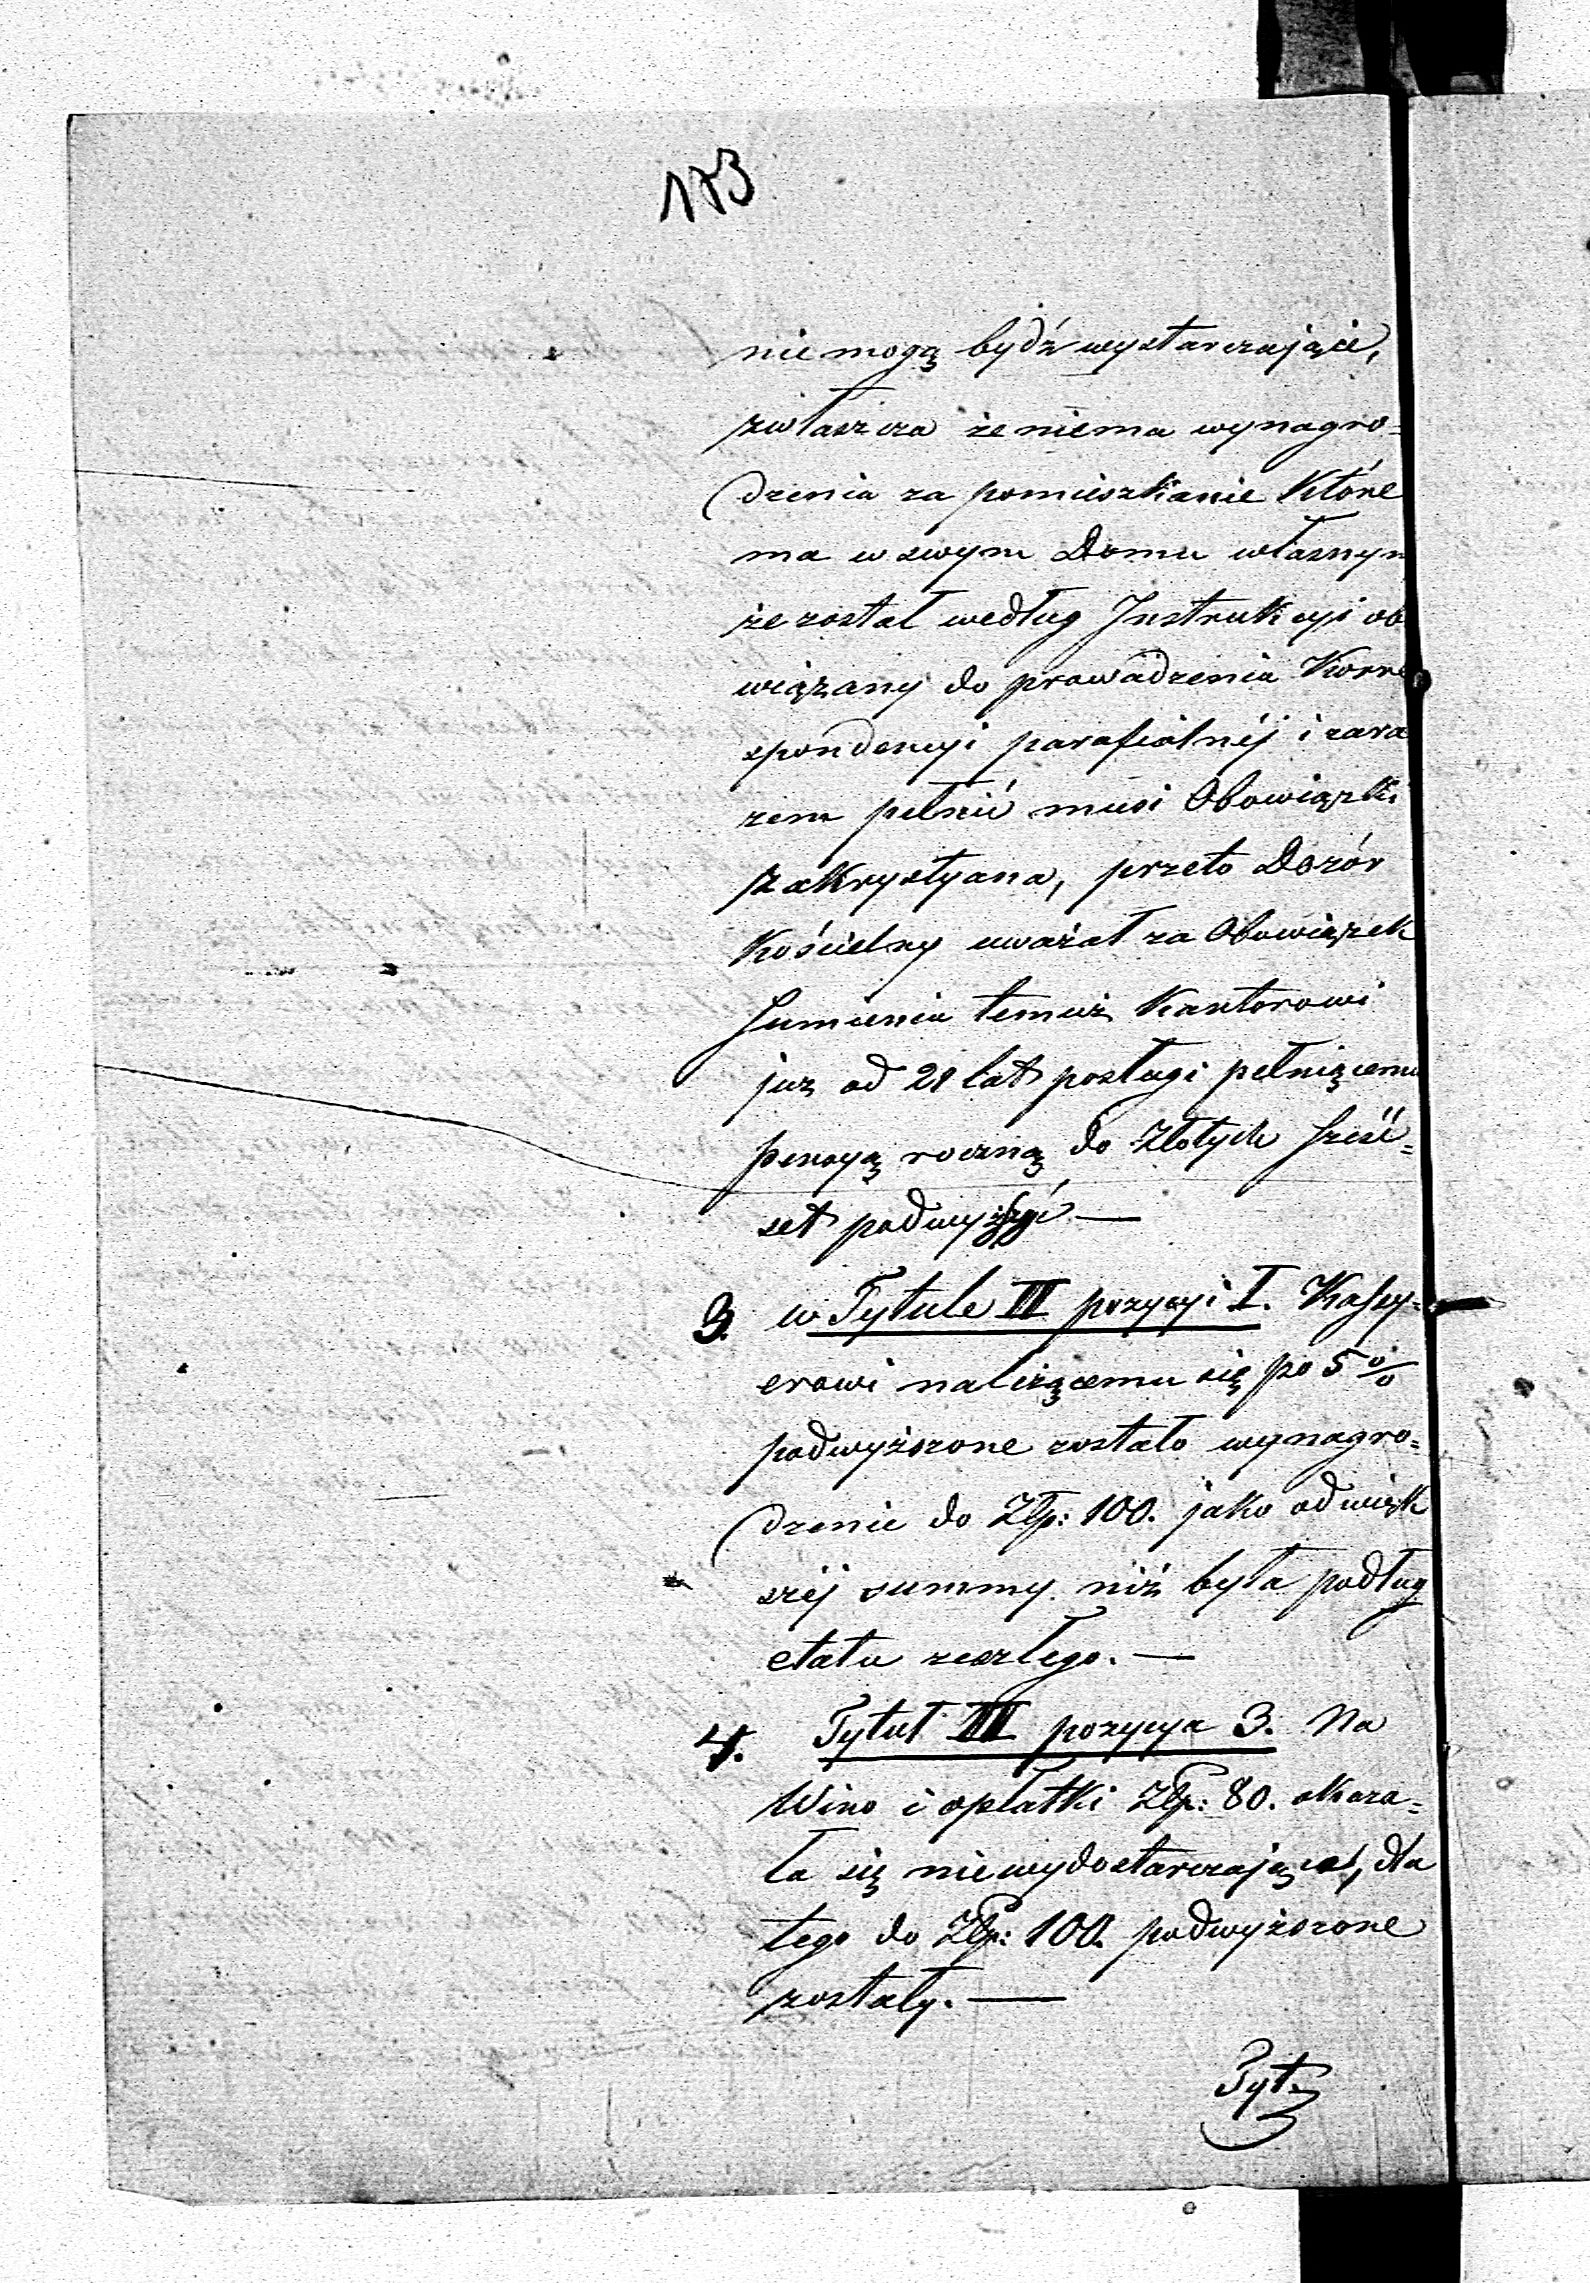 173
nie mogą bydź wystarczające,
zwłaszcza że niema wynagro=
dzenia za pomieszkanie Które
ma w swym Domu własnym
że został według Instrukcyi ob
wiązany do prowadzenia Korre
spondencyi parafialnéj i zara
zem pełnić musi Obowiązki
Zakrystyana, przeto Dozór
Kościelny uważał za Obowiązek
Sumienia temuż Kantorowi
już od 28 lat posługi pełniącemu
pensyą roczną do Złotych sześć=
set podwyższyć —
3. w Tytule III pozycyi I. Kassy=
erowi należącemu się po 5 %
podwyższone zostało wynagro=
dzenie do Złp: 100. jako od więk
széj summy niż była podług
etatu zeszłego. —
4. Tytuł III pozycya 3. Na
Wino i opłatki Złp: 80. okaza=
ła się niewydostarczające, dla
tego do Złp: 100. podwyższone
zostały. —
Tyt.